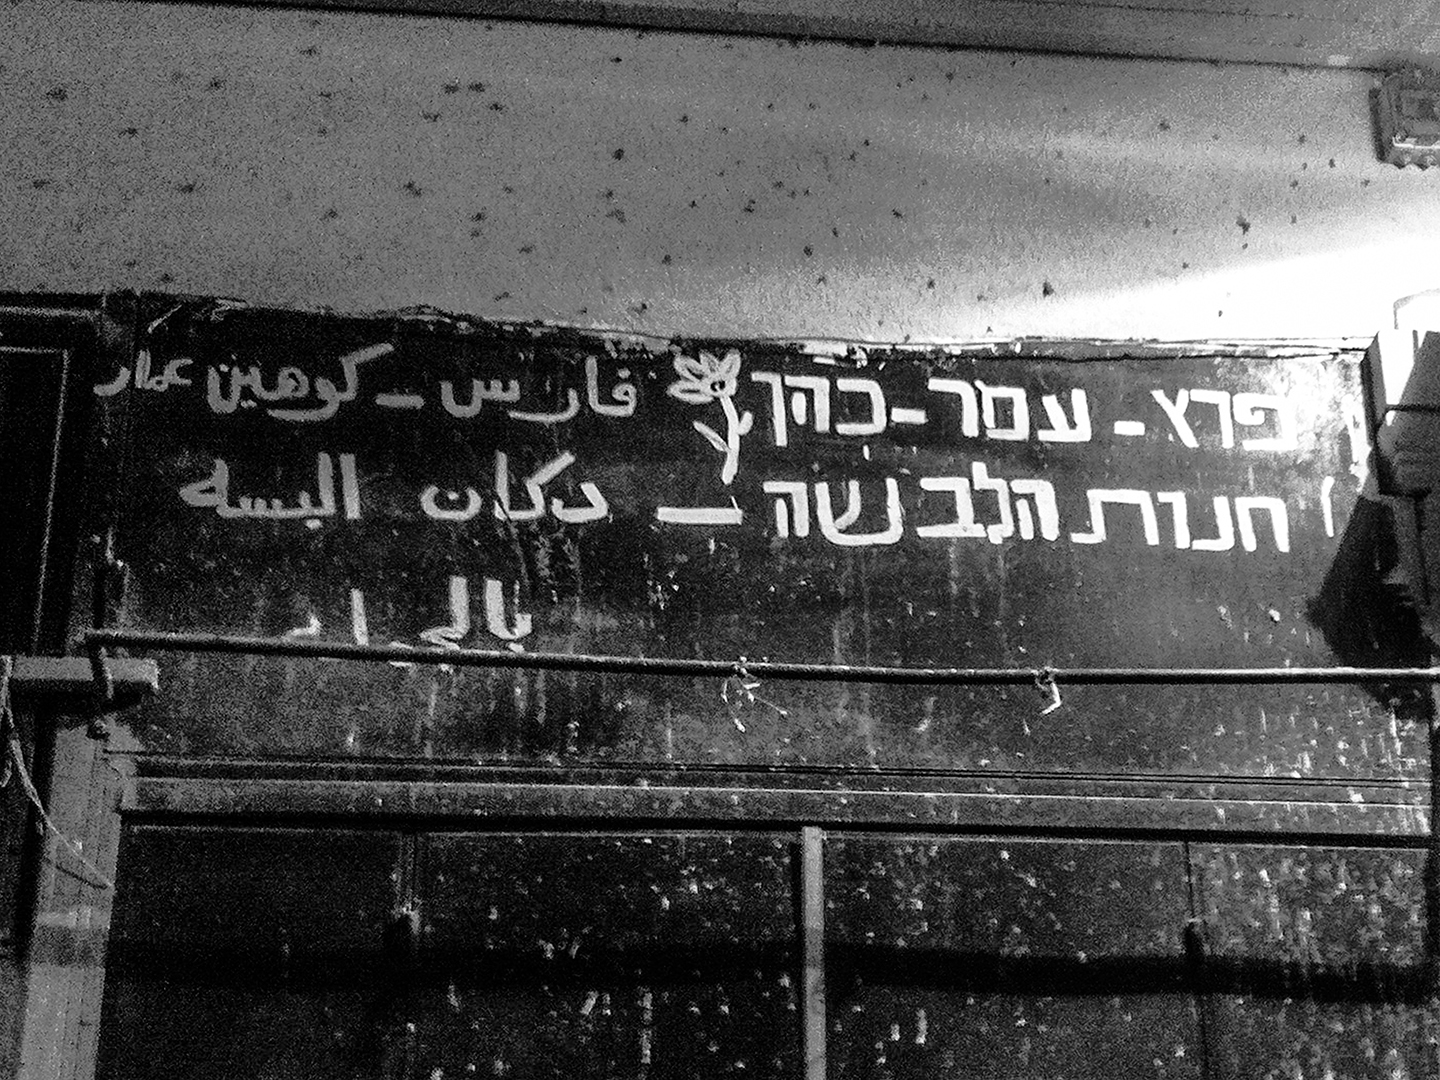 פרץ - עמר - כהן فارس - كوهين عمار
חנות הלבשה - دكان البسه